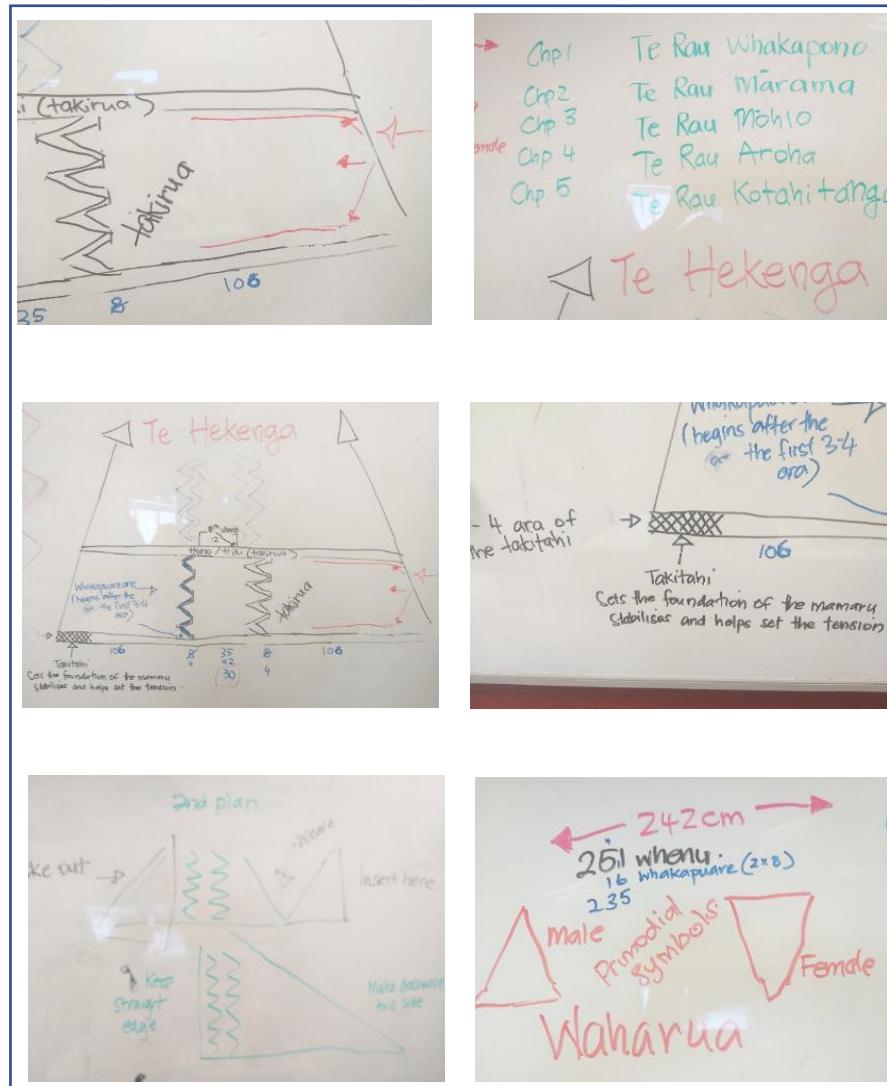 (takirua)
takirua
35
8
106
Chp1 Te Rau Whakapono
Chp2 Te Rau Mārama
Chp 3 Te Rau Mōhio
Chp 4 Te Rau Aroha
Chp 5 Te Rau Kotahitanga
Te Hekenga
Te Hekenga
Hono / Hiki (takirua)
Whakapuare
(begins after the
the first 3-4
ara)
takirua
106 8 35 8 106
30 4
Takitahi
Sets the foundation of the mamaru
stabilises and helps set the tension.
(begins after the
the first 3-4
ara)
4 ara of
takitahi
106
Takitahi
Sets the foundation of the mamaru
Stabilises and helps set the tension
2nd plan
Weave
out
Insert here
Keep
straight
edge
Make decrease
this side
242cm
251 whenu.
16 whakapuare (2x8)
235
Male
Primodial
Symbols.
Female
Waharua